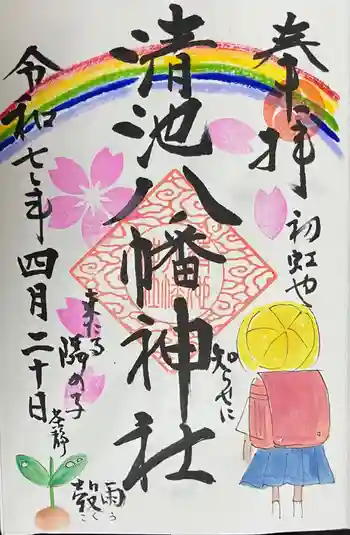 奉拝
初虹や
知らせに
清池八幡神社
来たる
隣の子
令和七年四月二十日
穀雨
こく
う